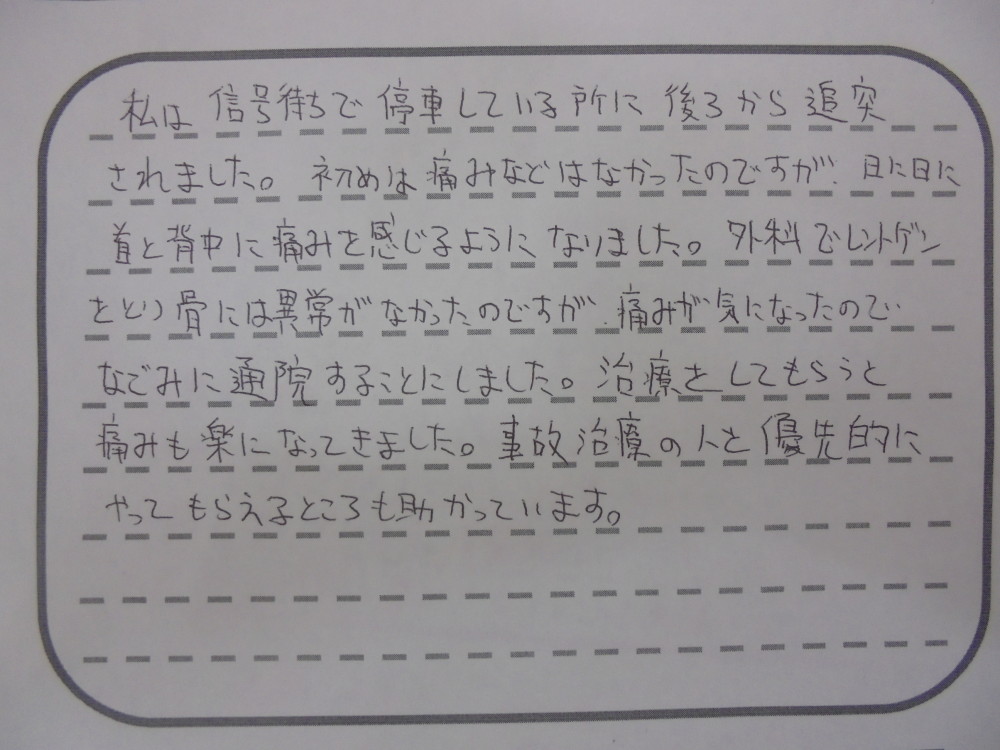 私は信号待ちで停車している所に後ろから追突
されました。初めは痛みなどはなかったのですが、日に日に
首と背中に痛みを感じるようになりました。外科でレントゲン
をとり骨には異常がなかったのですが、痛みが気になったので
なごみに通院することにしました。治療をしてもらうと
痛みも楽になってきました。事故治療の人と優先的に
やってもらえるところも助かっています。